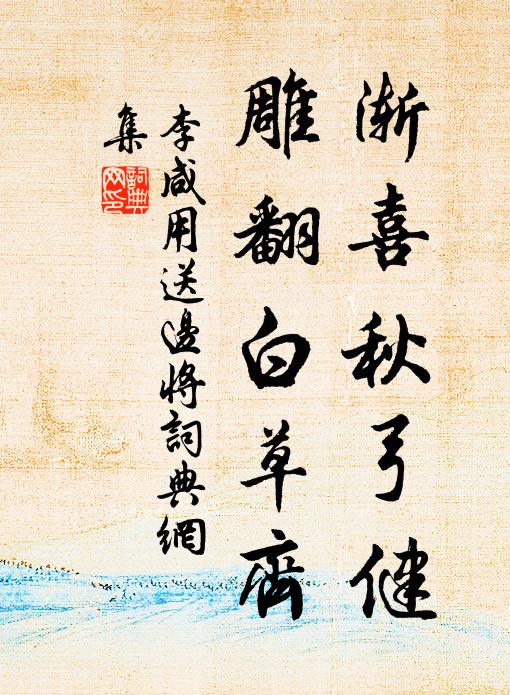 渐喜秋弓健
雕翻白草齊
李咸用送邊將詞典網
集
詞典
网印